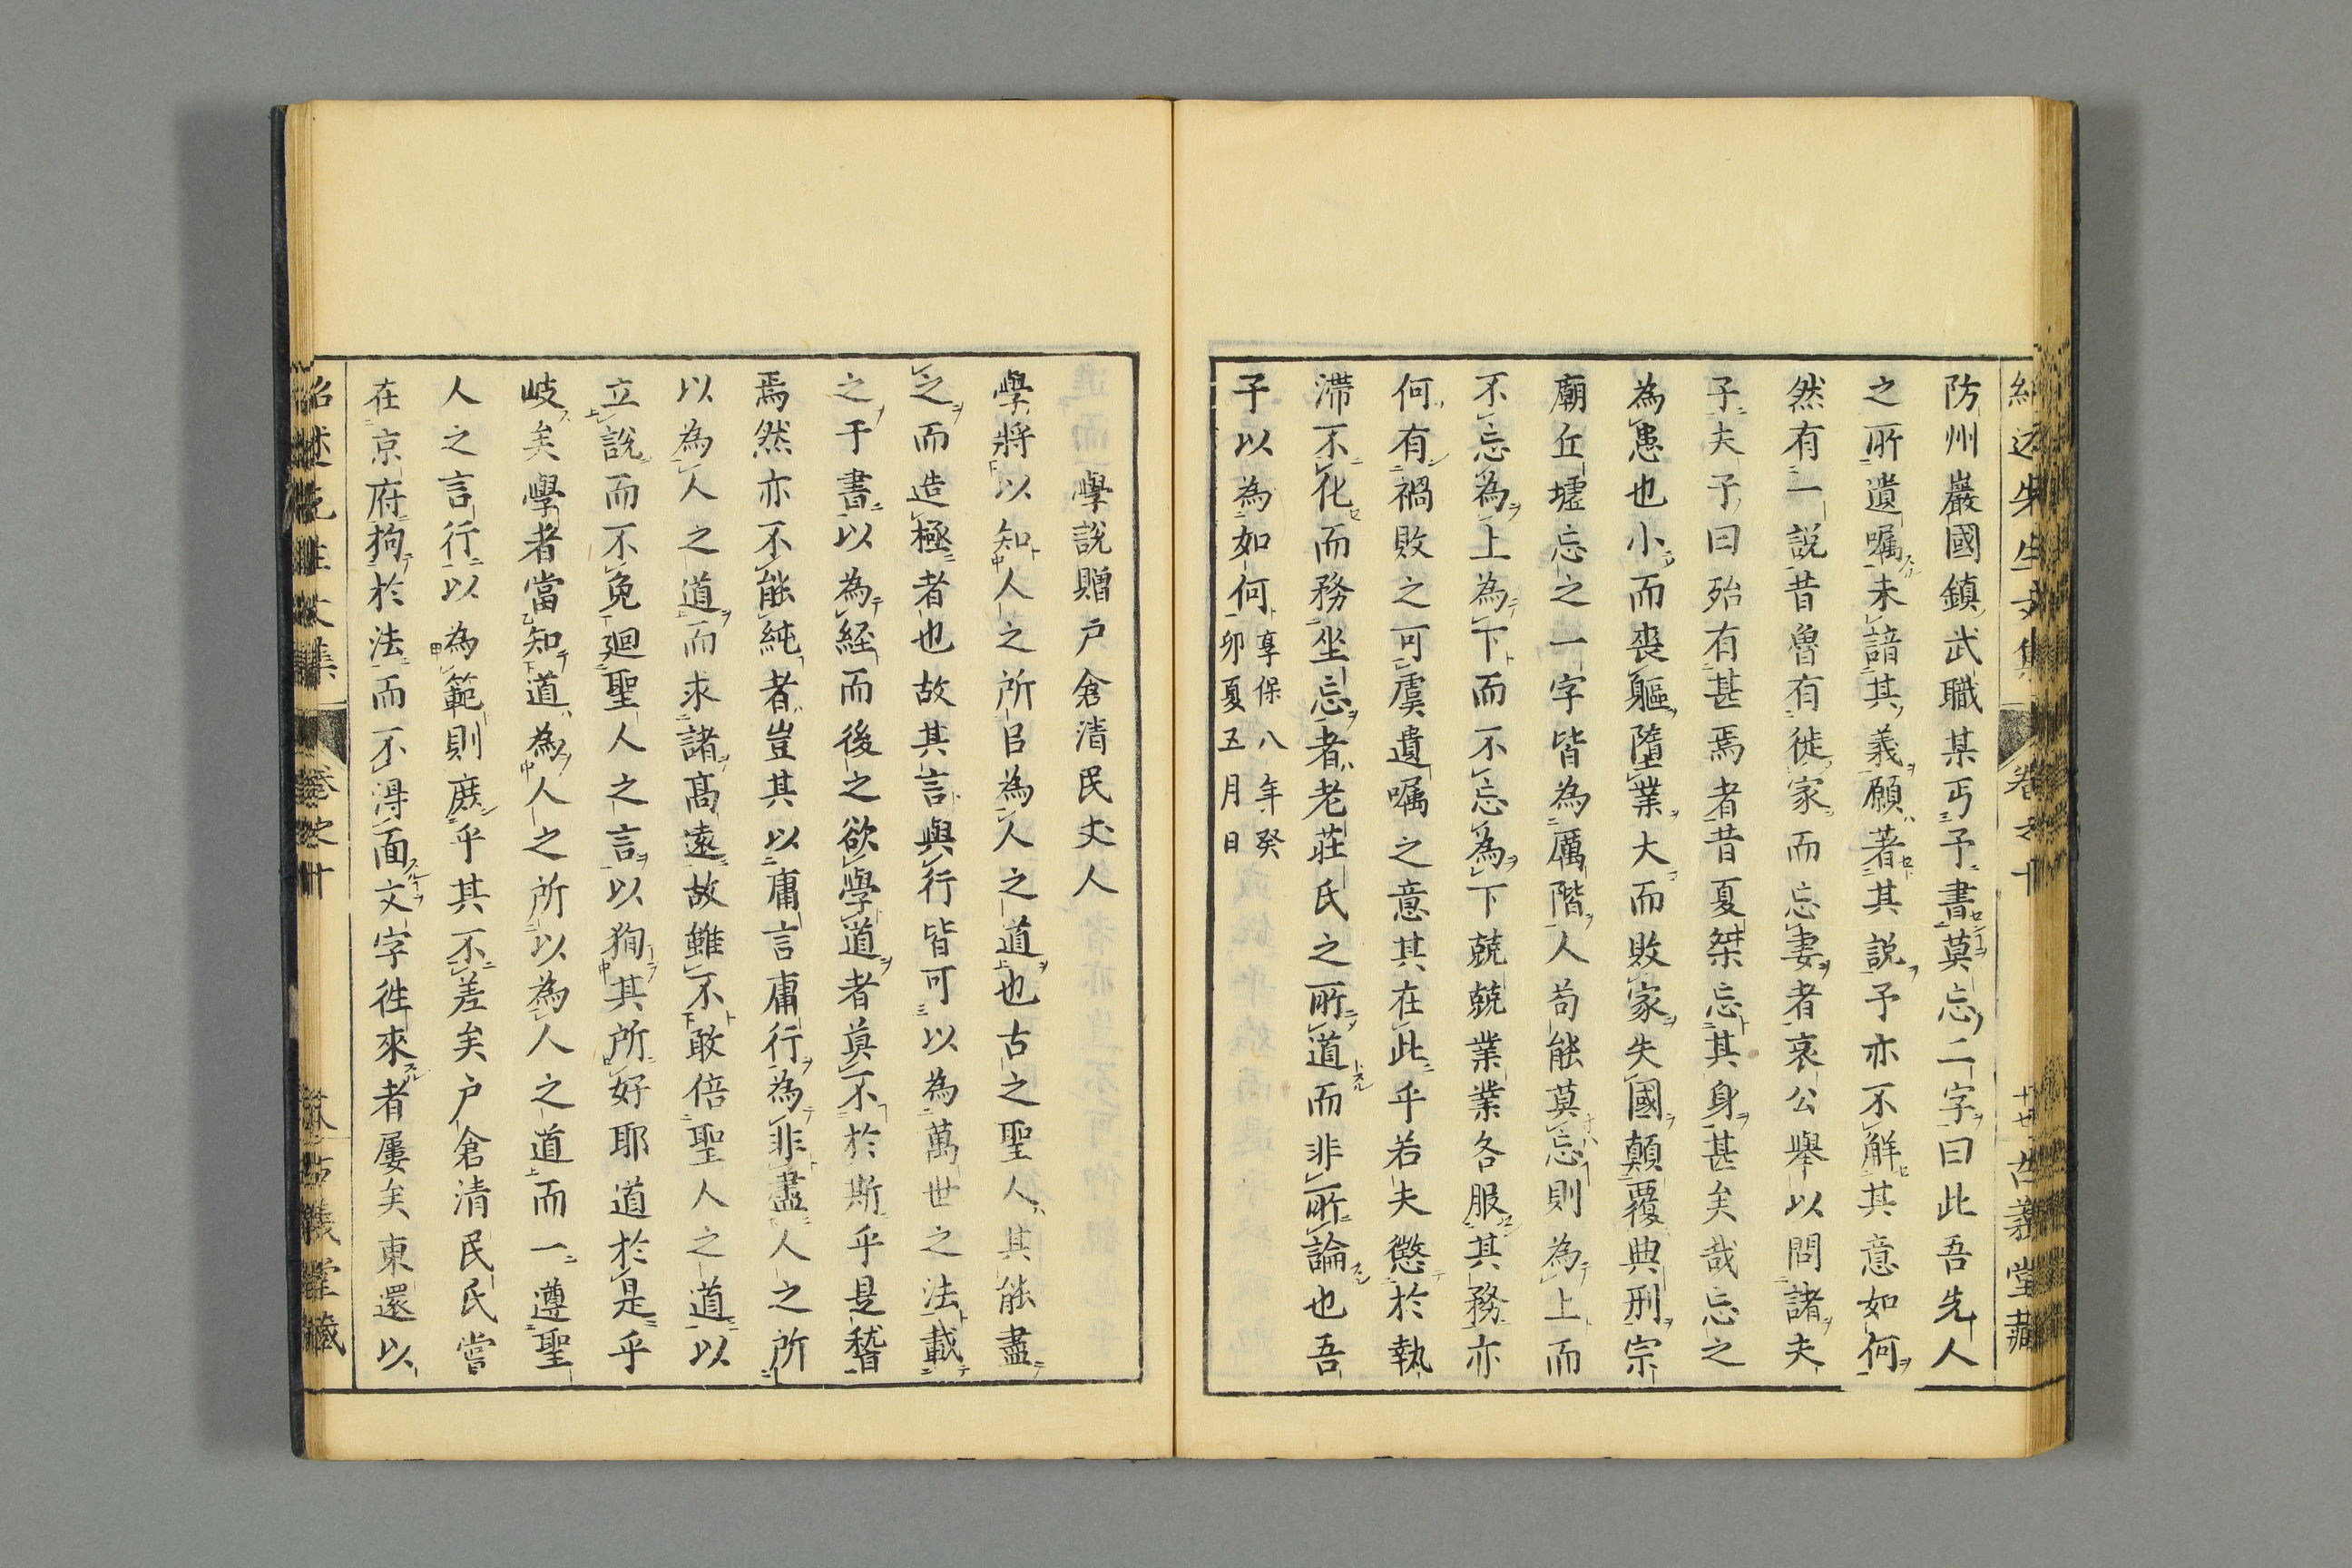 防州巖國鎮武職某丐予書莫忘二字曰此吾先人
之所遺囑未諳其義願著其說予亦不解其意如何
然有一說昔魯有徙家而忘妻者哀公舉以問諸夫
子夫子曰殆有甚焉者昔夏桀忘其身甚矣哉忘之
為患也小而喪軀墮業大而敗家失國顛覆典刑宗
廟丘墟忘之一字皆為厲階人苟能莫忘則為上而
不忘為上為下而不忘為下兢兢業業各服其務亦
何有禍敗之可虞遺囑之意其在此乎若夫懲於執
滯不化而務坐忘者老莊氏之所道而非所論也吾
子以為如何
享保八年癸
卯夏五月日
學說贈戶倉清民丈人
學將以知人之所㠯為人之道也古之聖人其能盡
之而造極者也故其言與行皆可以為萬世之法載
之于書以為経而後之欲學道者莫不於斯乎是稽
焉然亦不能純者豈其以庸言庸行為非盡人之所
以為人之道而求諸高遠故雖不敢倍聖人之道以
立說而不免廻聖人之言以狥其所好耶道於是乎
岐矣學者當知道為人之所以為人之道而一遵聖
人之言行以為範則庶乎其不差矣戶倉清民氏嘗
在京府拘於法而不得面文字徃來者屢矣東還以